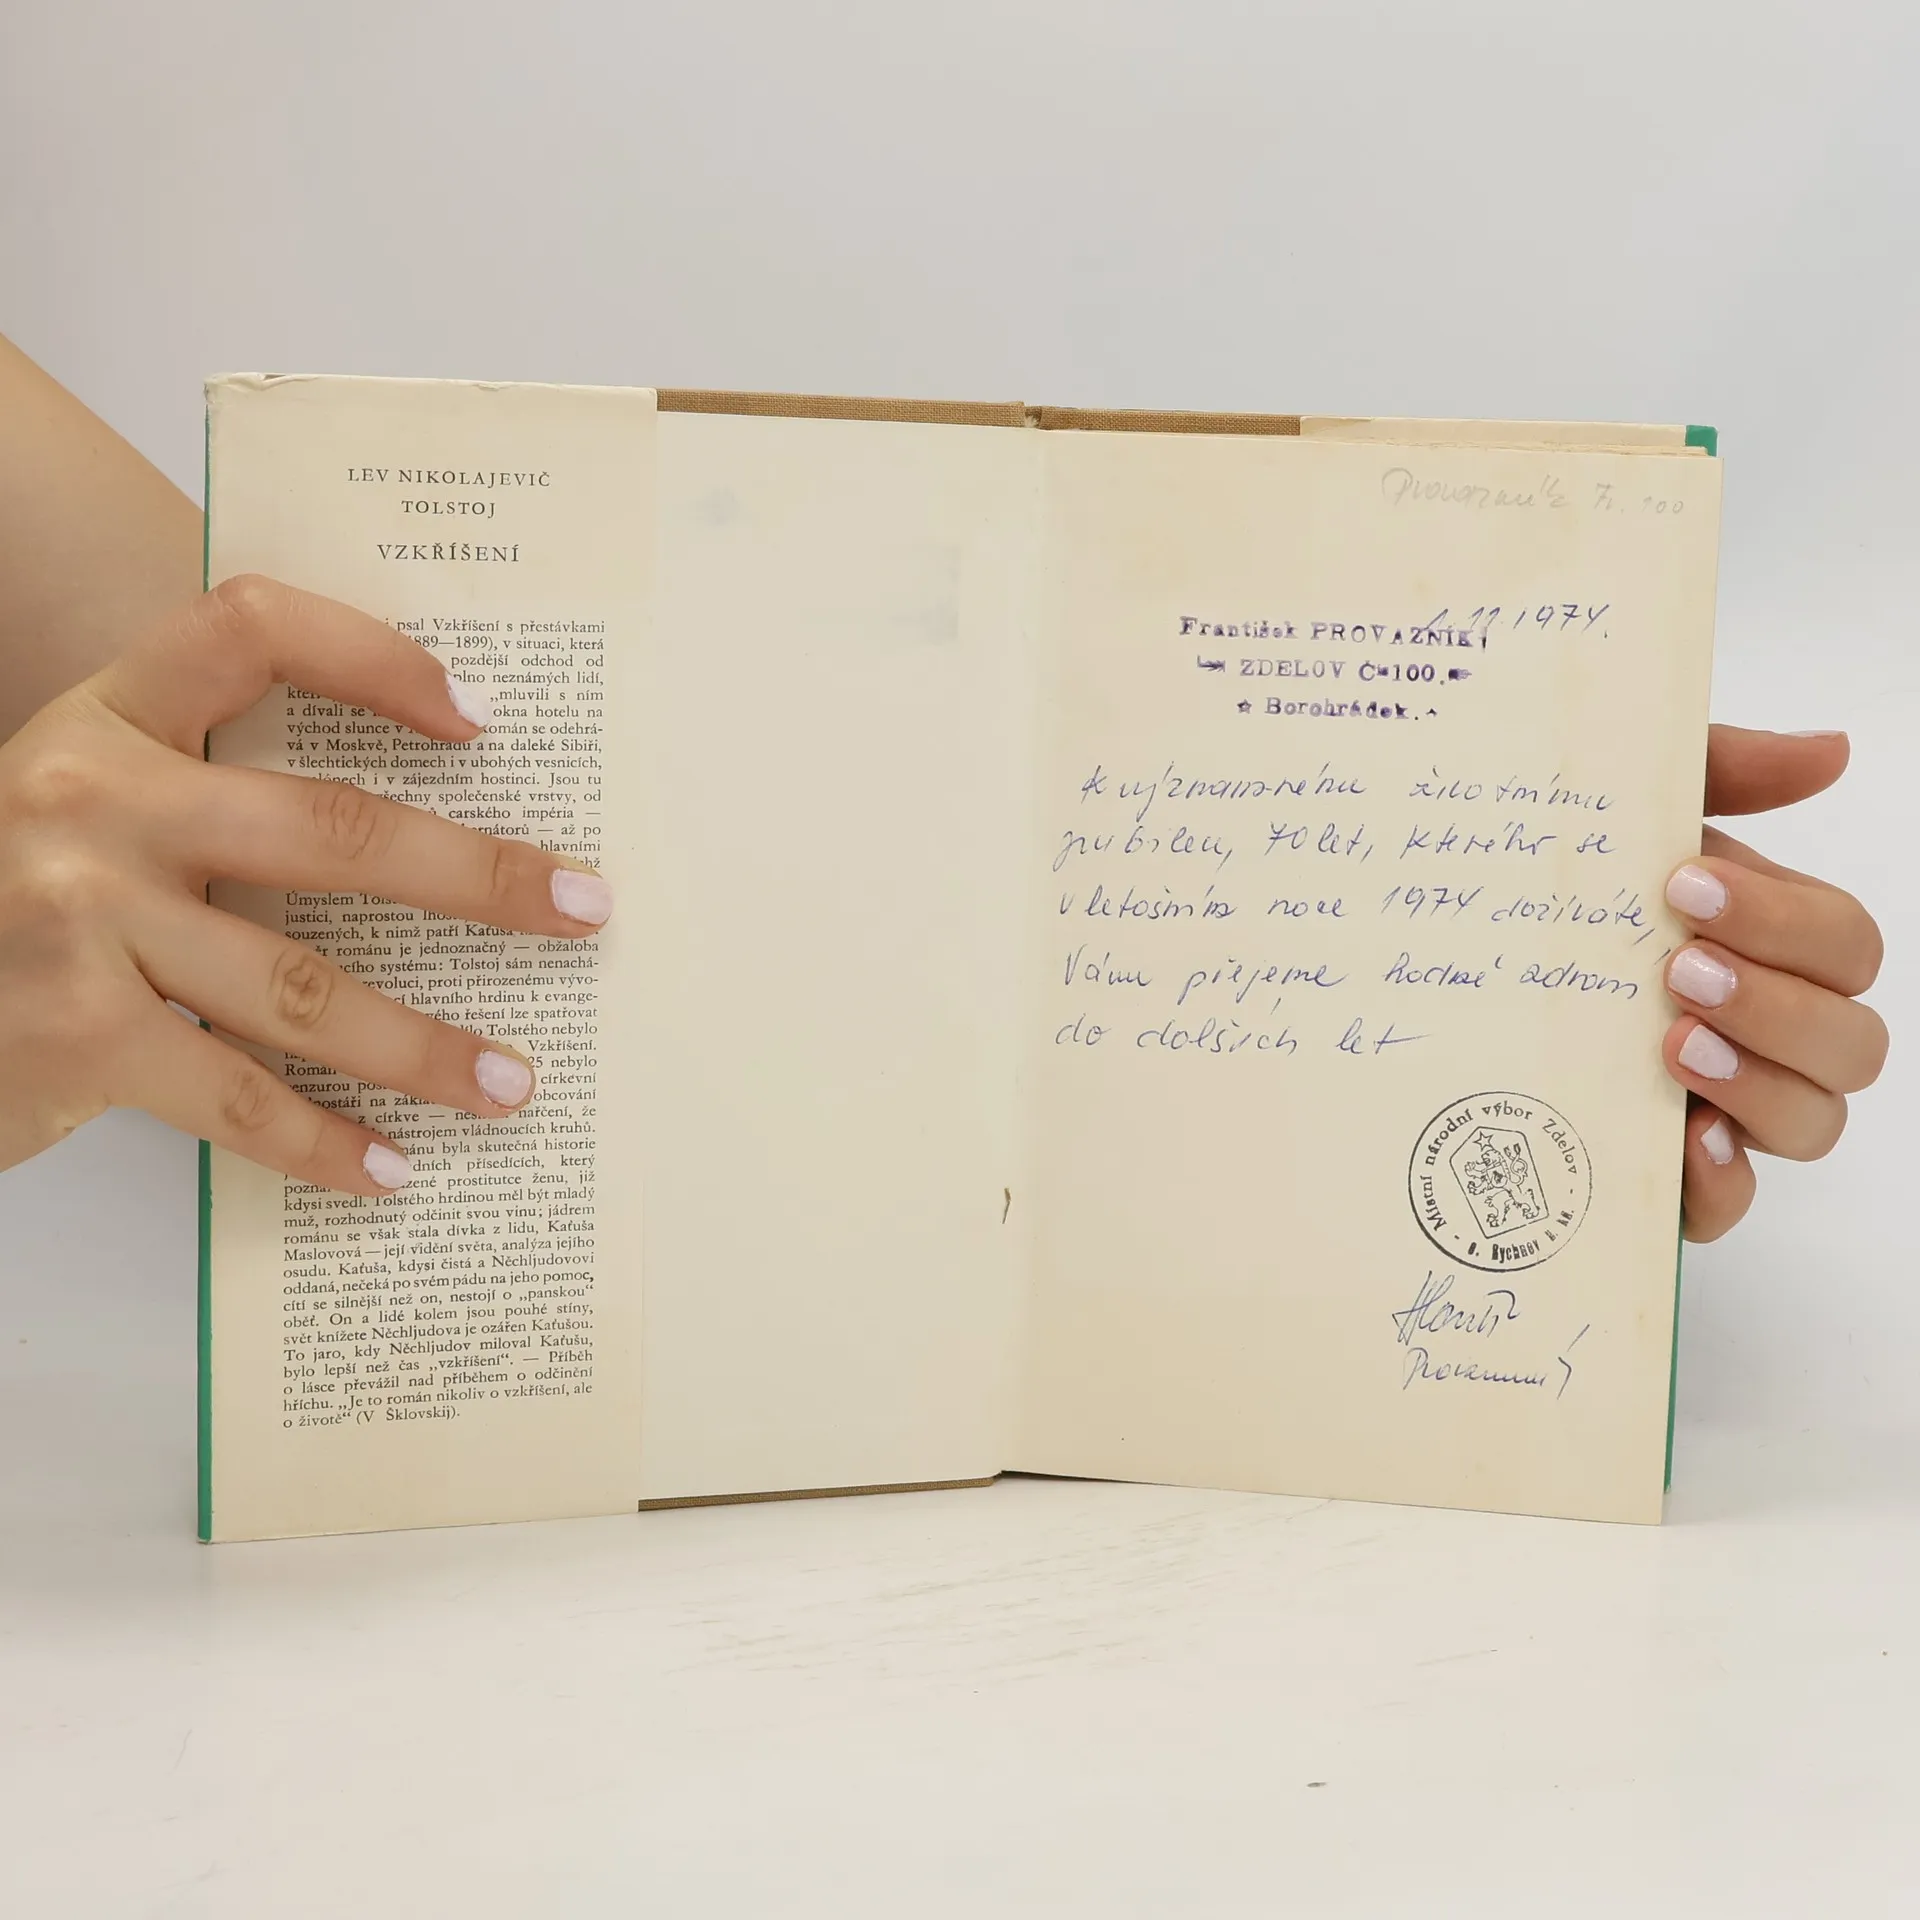 LEV NIKOLAJEVIČ
TOLSTOJ
VZKŘÍŠENÍ
psal Vzkříšení s přestávkami
889—1899), v situaci, která
pozdější odchod od
neznámých lidí,
„mluvili s ním
a dívali se okna hotelu na
východ slunce v román se odehrá-
vá v Moskvě, Petrohradu a na daleké Sibiři,
v šlechtických domech i v ubohých vesnicích,
i v zájezdním hostinci. Jsou tu
všechny společenské vrstvy, od
carského impéria —
— až po
hlavními
Úmyslem
justici, naprostou
souzených, k nimž patří Kaťuša
románu je jednoznačný — obžaloba
systému: Tolstoj sám nenachá-
revoluci, proti přirozenému vývo-
hlavního hrdinu k evange-
řešení lze spatřovat
Tolstého nebylo
Vzkříšení.
Román 25 nebylo
cenzurou církevní
na obcování
z církve — nařčení, že
nástrojem vládnoucích kruhů.
byla skutečná historie
přísedících, který
prostitutce ženu, již
kdysi svedl. Tolstého hrdinou měl být mladý
muž, rozhodnutý odčinit svou vinu; jádrem
románu se však stala dívka z lidu, Kaťuša
Maslovová — její vidění světa, analýza jejího
osudu. Kaťuša, kdysi čistá a Něchljudovovi
oddaná, nečeká po svém pádu na jeho pomoc,
cítí se silnější než on, nestojí o „panskou“
oběť. On a lidé kolem jsou pouhé stíny,
svět knížete Něchljudova je ozářen Kaťušou.
To jaro, kdy Něchljudov miloval Kaťušu,
bylo lepší než čas „vzkříšení“. — Příběh
o lásce převážil nad příběhem o odčinění
hříchu. „Je to román nikoliv o vzkříšení, ale
o životě“ (V Šklovskij).
Provazník Fr. 100
1.11.1974.
František PROVAZNÍK
ZDELOV Č 100.
Borohrádek.
K významnému životnímu
jubileu, 70 let, kterého se
v letošním roce 1974 dožíváte,
Vám přejeme hodně zdraví
do dalších let
Místní národní výbor Zdelov
- o. Rychnov n. Kn. -
Provazník